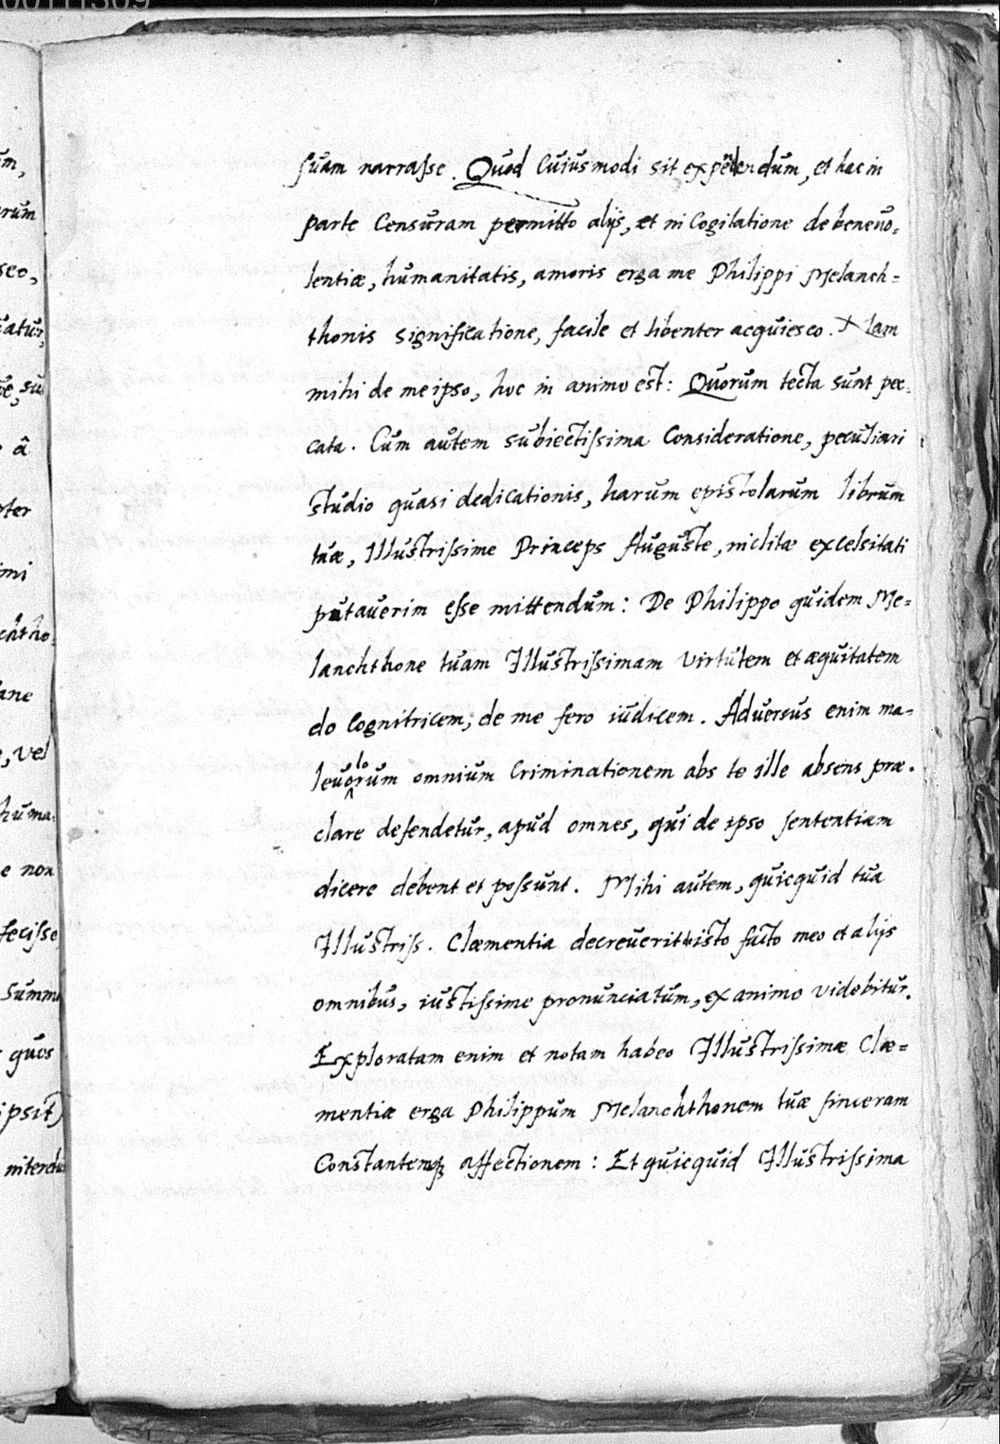 00111309
suam narrasse. Quod Cuiusmodi sit expendendum, et hac in
parte Censuram permitto alijs, et in Cogitatione de beneuo=
lentiæ, humanitatis, amoris erga me Philippi Melanch=
thonis significatione, facile et libenter acquiesco. + Iam
mihi de me ipso, hoc in animo est: Quorum tecta sunt pec=
cata. Cum autem subiectissima Consideratione, peculiari
studio quasi dedicationis, harum epistolarum librum
tuæ, Illustrissime Princeps Auguste, inclitæ excelsitati
putauerim esse mittendum: De Philippo quidem Me=
lanchthone tuam Illustrissimam virtutem et æquitatem
do Cognitricem, de me fero iudicem. Aduersus enim ma=
leuolorum omnium Criminationem abs te ille absens præ=
clare defendetur, apud omnes, qui de ipso sententiam
dicere debent et possunt. Mihi autem, quicquid tua
Illustriss. Clæmentia decreuerit isto facto meo et alijs
omnibus, iustissime pronunciatum, ex animo videbitur.
Exploratam enim et notam habeo Illustrissimæ Clæ=
mentiæ erga Philippum Melanchthonem tuæ sinceram
Constantemq; affectionem: Et quicquid Illustrissima
um,
rum
seo,
uatur,
pe, su
â
pter
imi
chtho=
ane
, vel
huma=
e non
fecisse
summa
quos
ipsit)
interdu